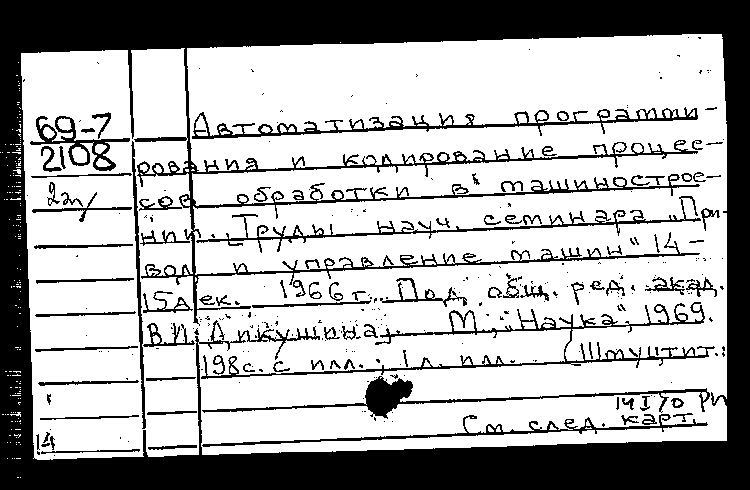 69-7
2108
Автоматизация программи-
рования и кодирование процес-
сов обработки в машинострое-
нии. [Труды науч. семинара „При-
вод и управление машин" 14-
15 дек. 1966 г. Под общ. ред. акад.
В.И. Дикушина]. М., „Наука", 1969.
198 с. с илл.; 1 л. илл. (Штуцтит.:
14 I 70 РП
См. след. карт.
14